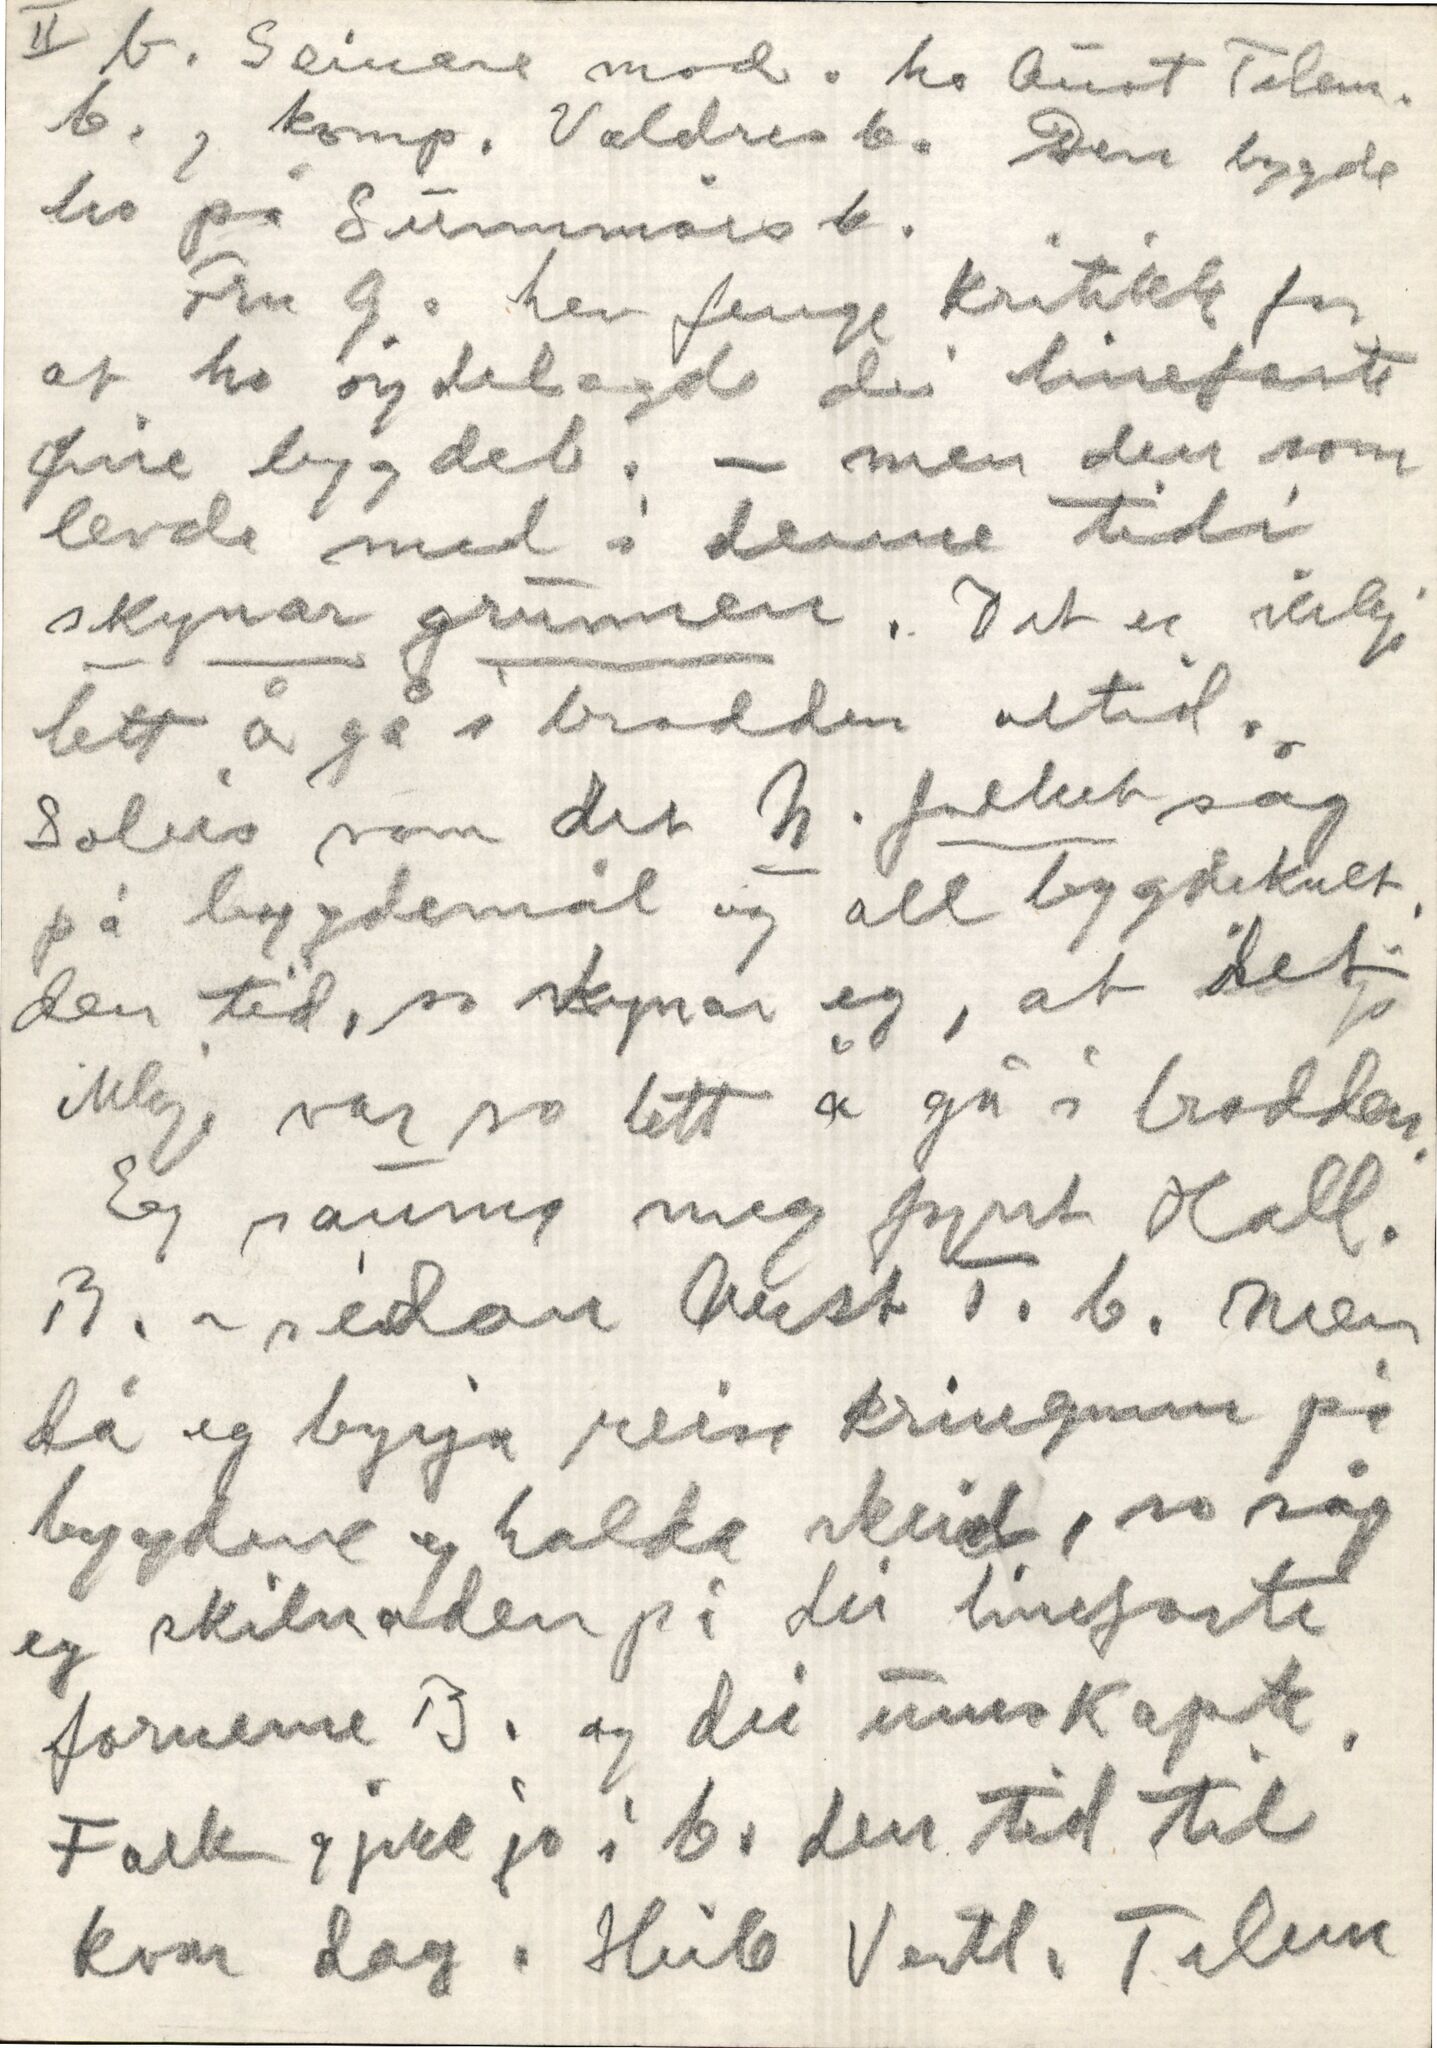 II b. Seinare mod. ho Aust Telem.
b., komp. Valdres b. Den bygde
ho på Sunnmørs b.
Fru G. hev fenge kritikk for
at ho øydelagde dei linefaste
fine bygdeb. – men den som
levde med i denne tidi
skynar grunnen. Det er ikkje
lett å gå i brodden altid.
Soleis som det N. folket såg
på bygdemål og all bygdekult.
den tid, so skynar eg, at det
ikkje var so lett å gå i brodden.
Eg sauma meg fyrst Hall.
B. – sidan Aust T. b. Men
då eg byrja reise kringum på
bygdene og halda skeid, so såg
eg skilnaden på dei linefaste
forneme B. og dei umskapte.
Folk gjekk jo i b. den tid til
kvar dag. Heile Vestl. Telem